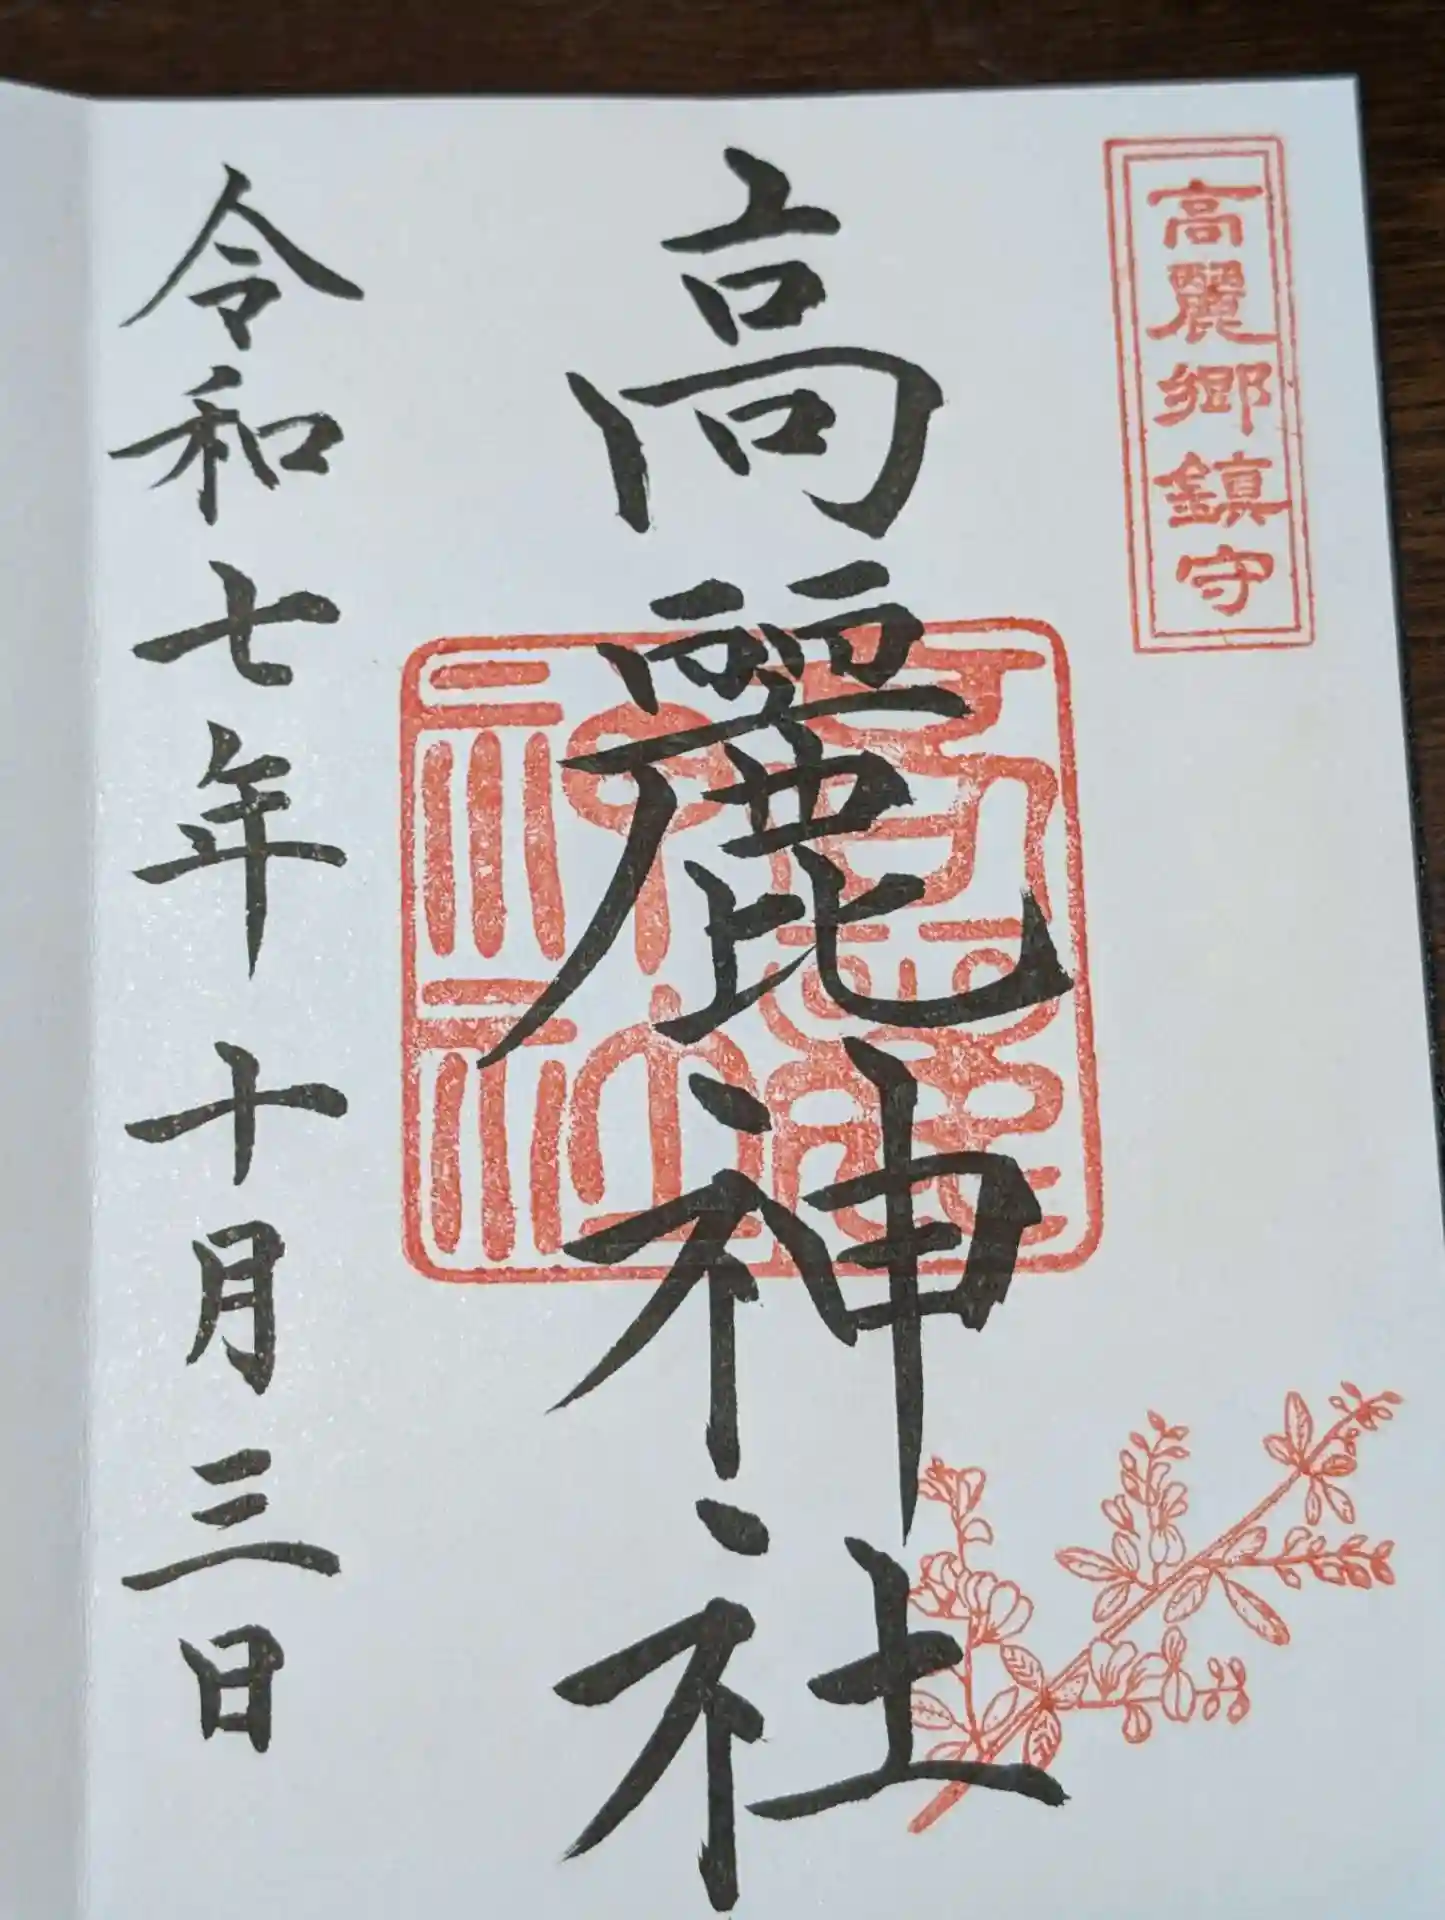 高麗郷鎮守
高麗神社
高麗神社
令和七年十月三日